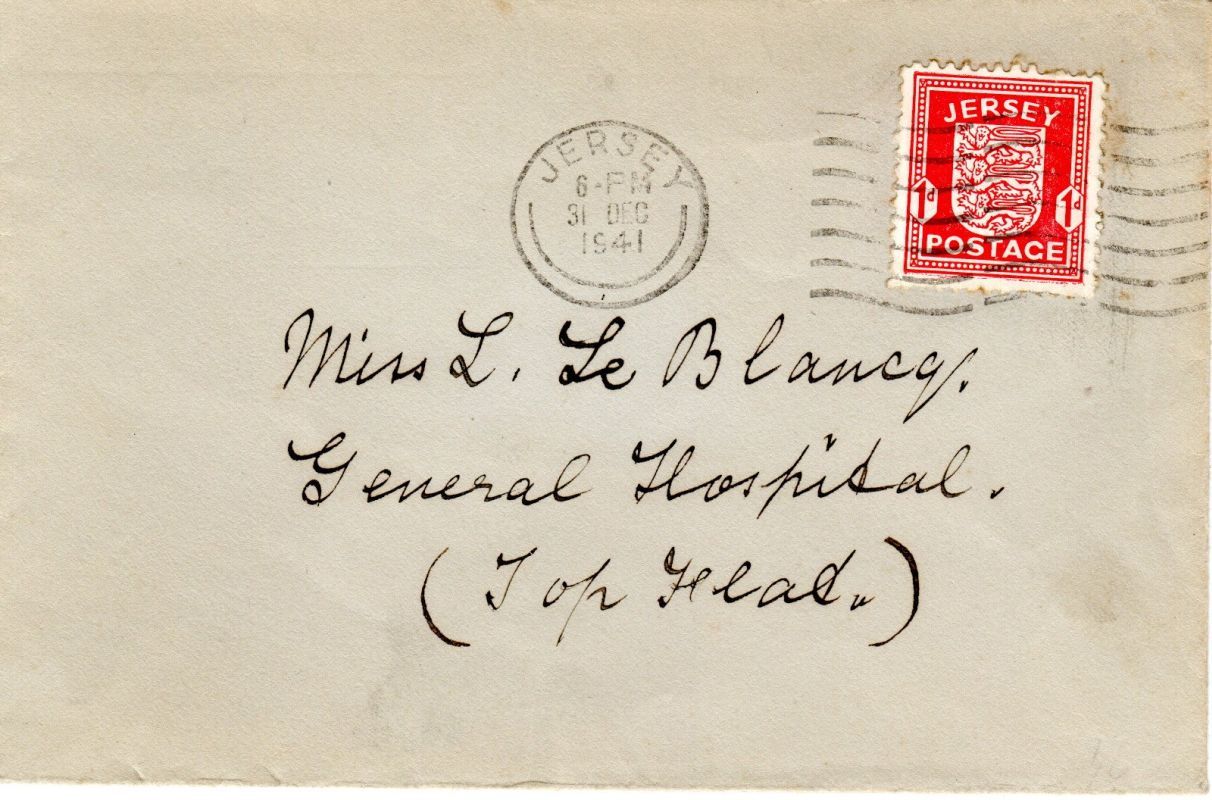 JERSEY
6-PM
31 DEC
1941
JERSEY
1d 1d
POSTAGE
Miss L. Le Blancq.
General Hospital.
(Top Flat.)